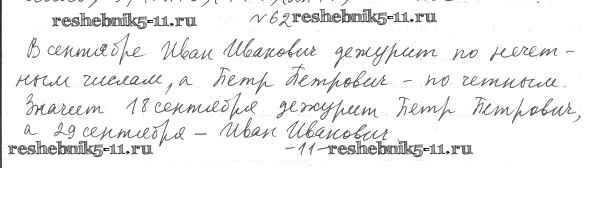 reshebnik5-11.ru №62 reshebnik5-11.ru
В сентябре Иван Иванович дежурит по нечет-
ным числам, а Петр Петрович – по четным.
Значит 18 сентября дежурит Петр Петрович,
а 29 сентября – Иван Иванович.
reshebnik5-11.ru -11- reshebnik5-11.ru